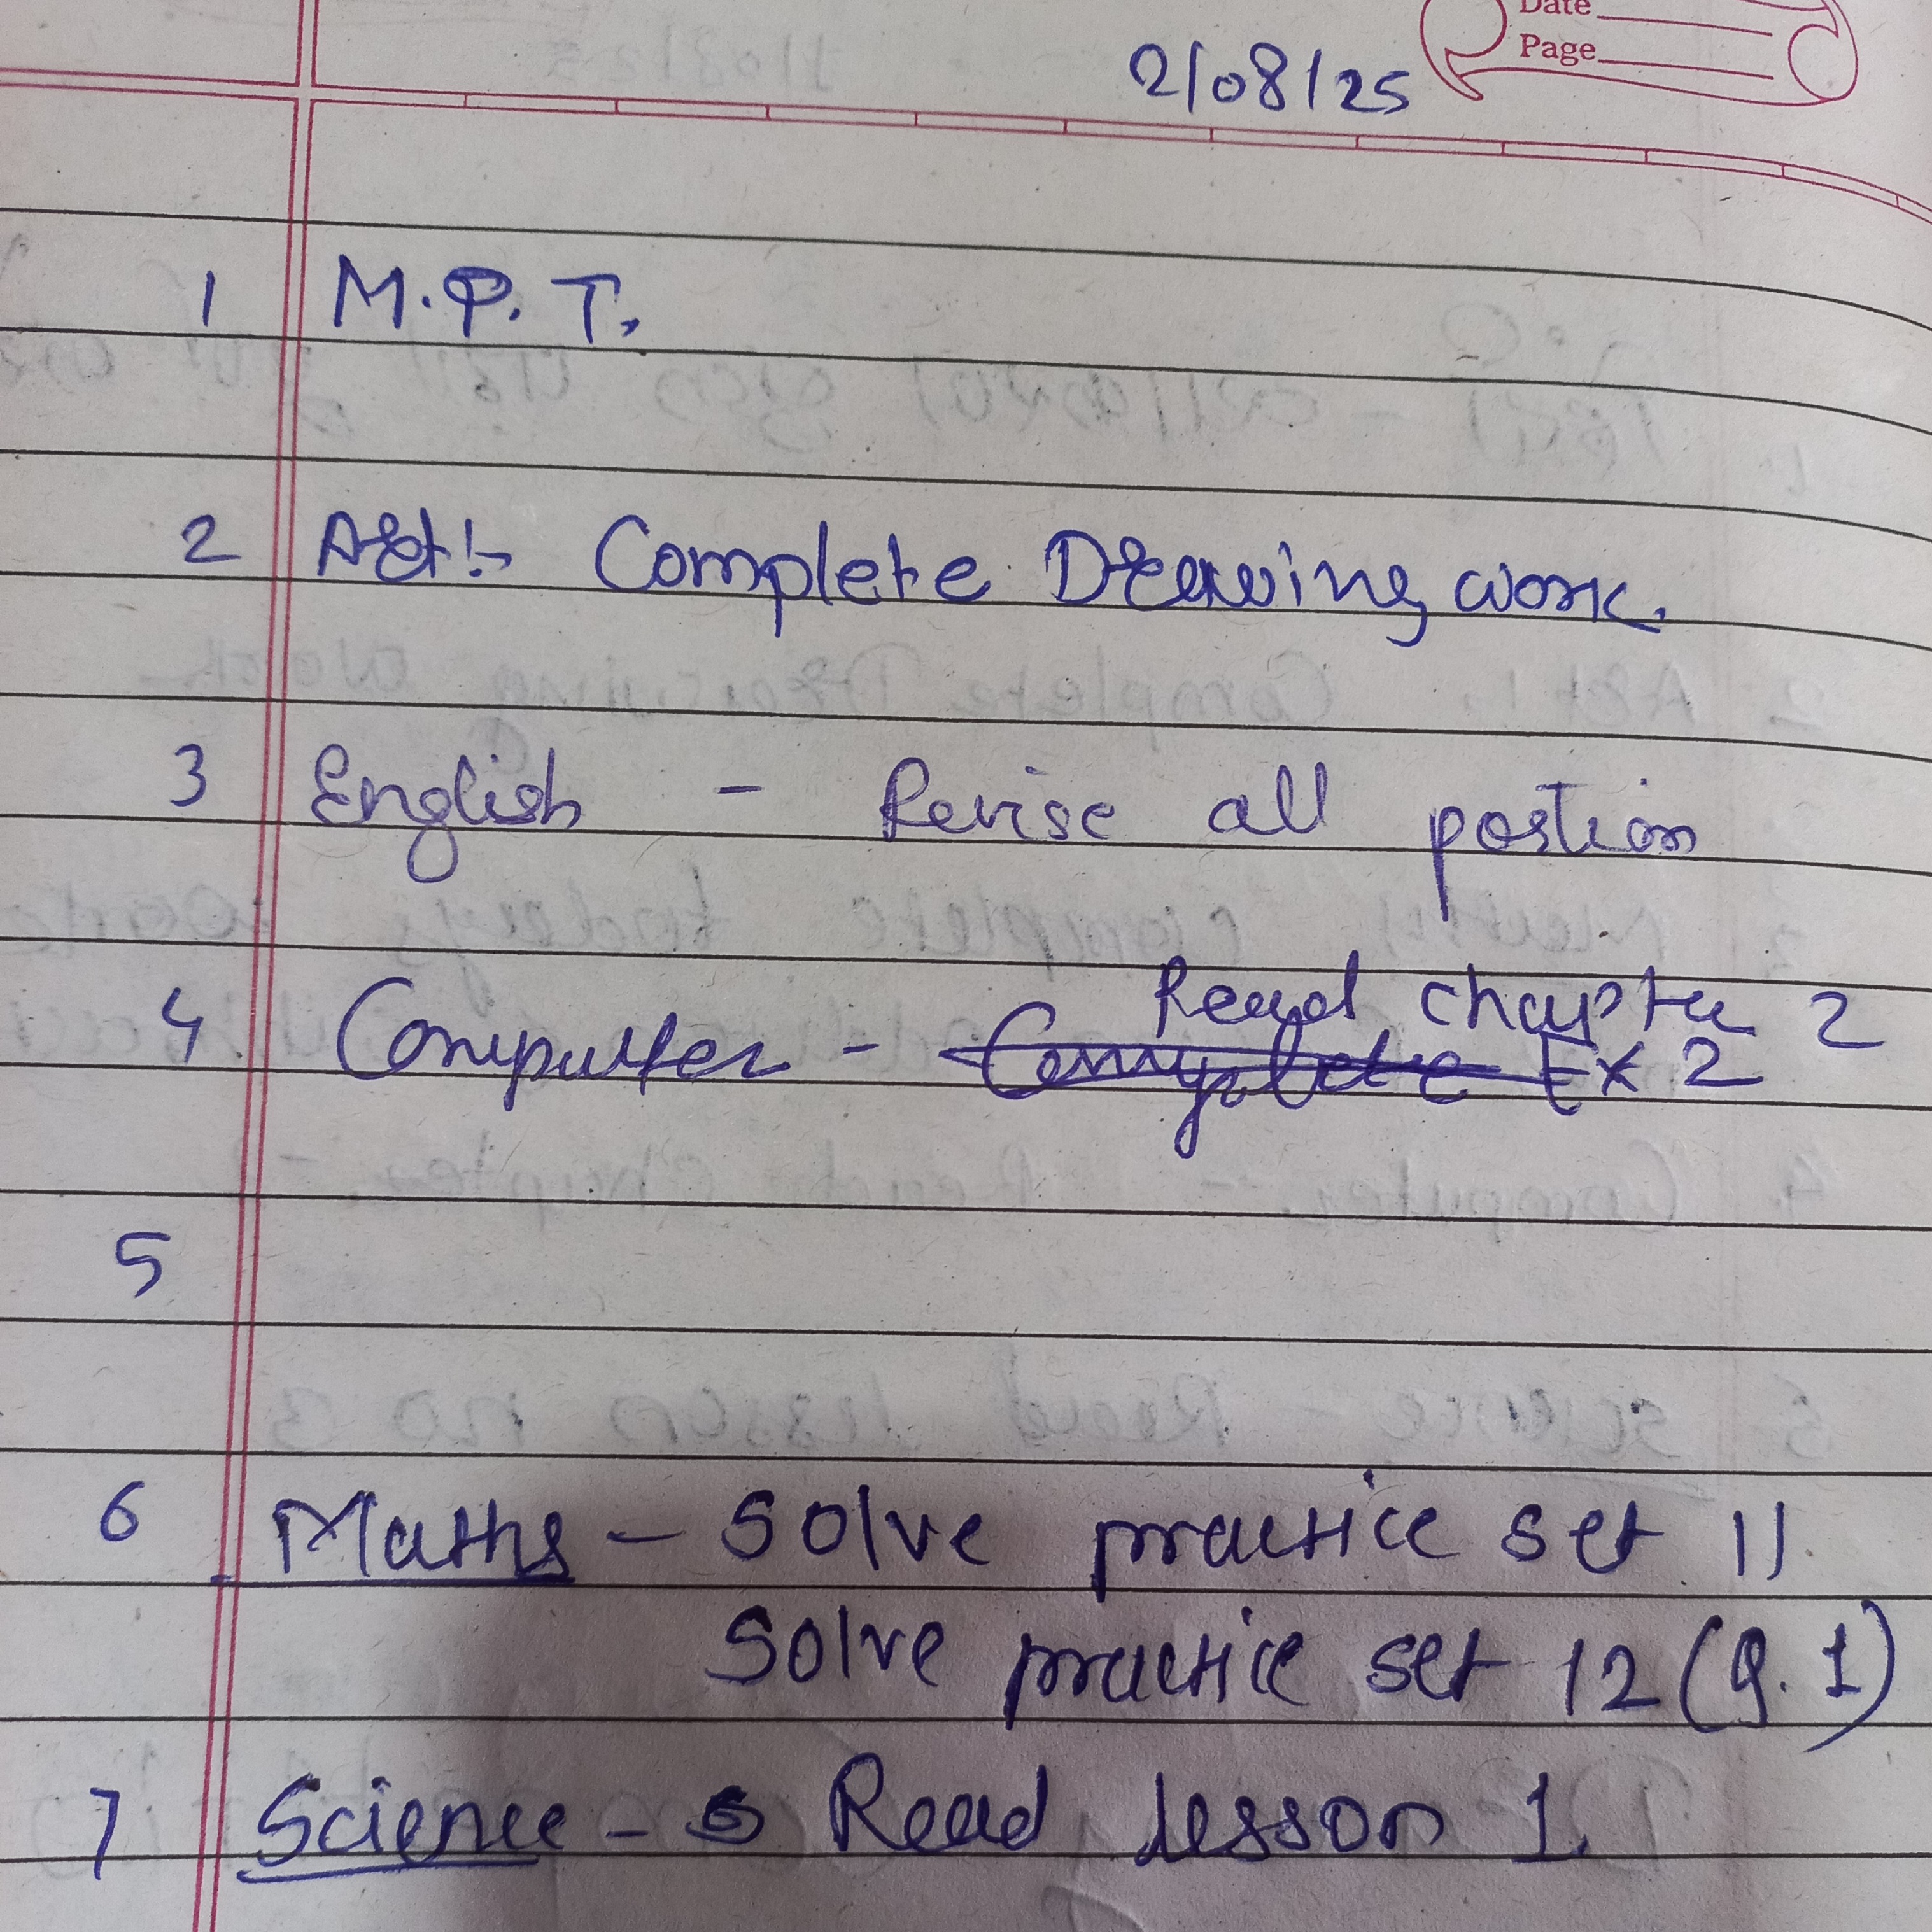 Date
Page
2/08/25
1 M.P.T.
2 Art:- Complete Drawing work.
3 English - Revise all portion
4 Computer - Read chapter 2
Complete Ex 2
5
6 Maths - Solve practice set 11
Solve practice set 12 (Q.1)
7 Science - Read lesson 1.